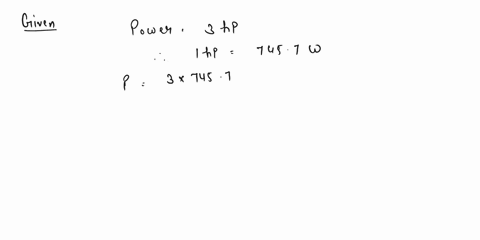 Given
Power . 3 hp
∴ 1 hp = 745.7 W
P = 3 × 745.7